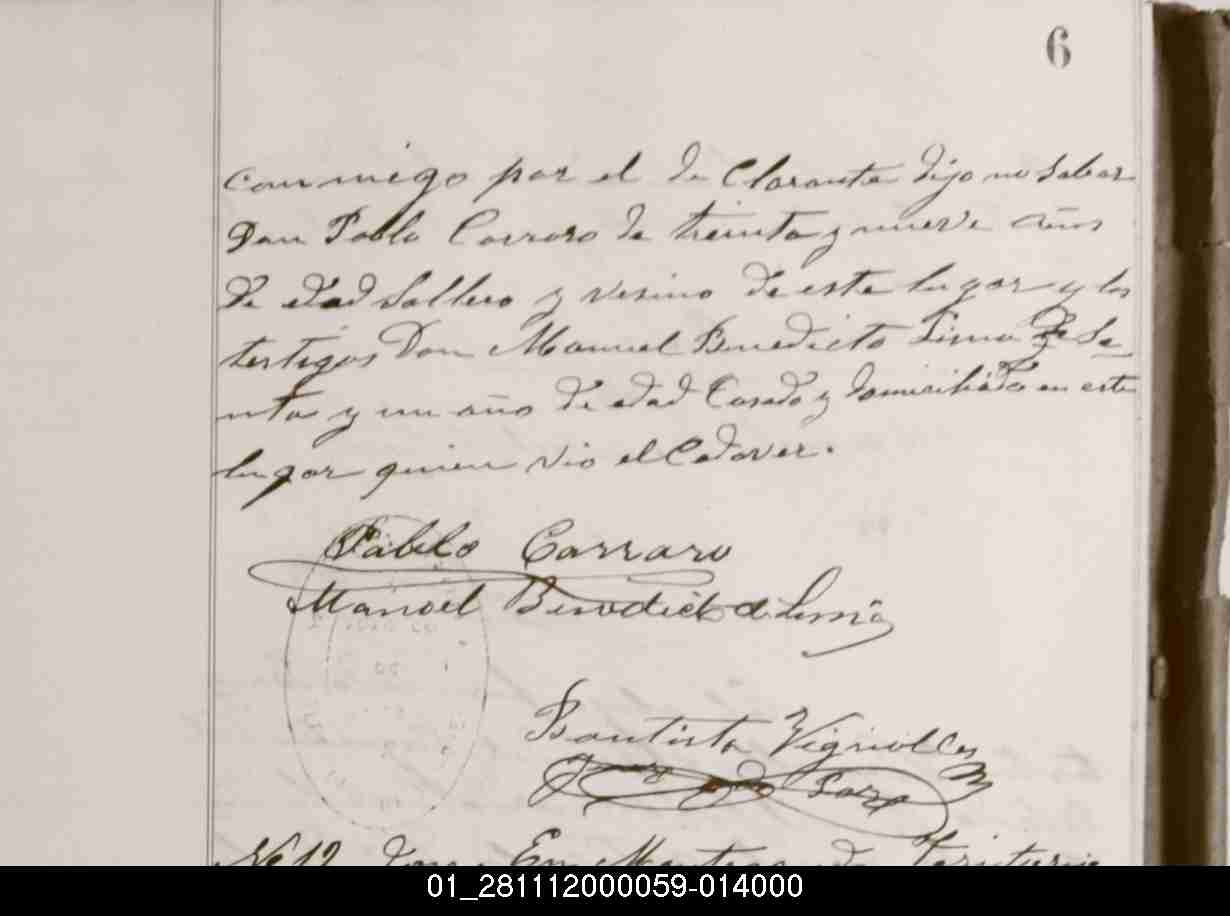 6
conmigo por el de Clarante dijo no saber
Don Pablo Carraro de treinta y nueve años
de edad Soltero y vesino de este lugar y los
testigos Don Manuel Benedicto Lima de Se-
nta y un año de edad Casado y domiciliado en este
lugar quien vio el Cadaver.
Pablo Carraro
Manoel Benedicto de Lima
Bautista Vignolles
Juez de Paz
No 12
01_281112000059-014000